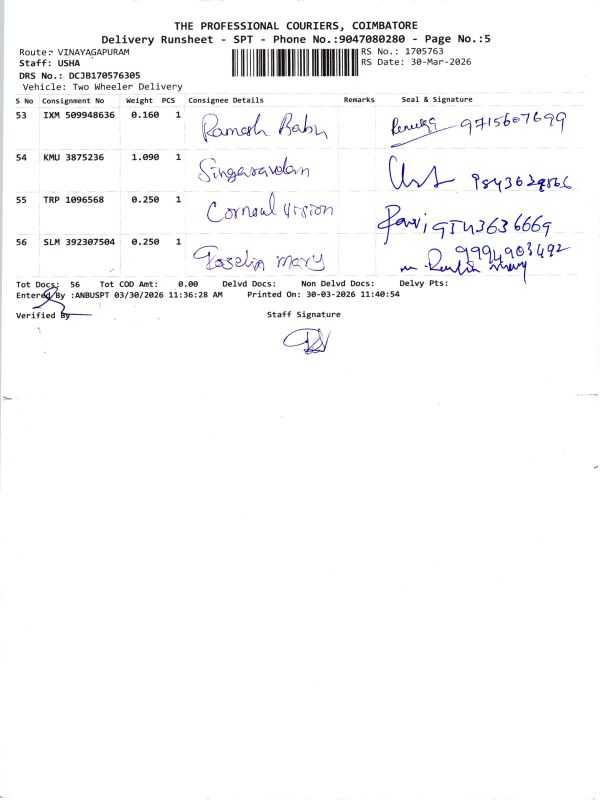 THE PROFESSIONAL COURIERS, COIMBATORE
Delivery Runsheet - SPT - Phone No.:9047080280 - Page No.:5
Route: VINAYAGAPURAM RS No.: 1705763
Staff: USHA RS Date: 30-Mar-2026
DRS No.: DCJB170576305
Vehicle: Two Wheeler Delivery
S No Consignment No Weight PCS Consignee Details Remarks Seal & Signature
53 IXM 509948636 0.160 1 Ramesh Babu Renuka 9715607699
54 KMU 3875236 1.090 1 Singaravelan
55 TRP 1096568 0.250 1 Corneal Vision 9543636669
56 SLM 392307504 0.250 1 Joselin Mary 9994903492
Mary
Tot Docs: 56 Tot COD Amt: 0.00 Delvd Docs: Non Delvd Docs: Delvy Pts:
Entered By :ANBUSPT 03/30/2026 11:36:28 AM Printed On: 30-03-2026 11:40:54
Verified By Staff Signature